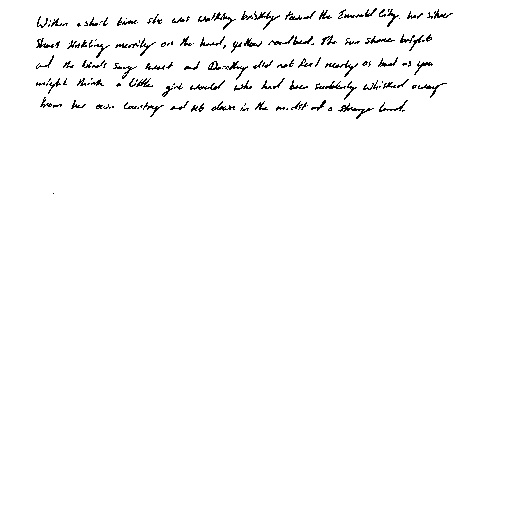 Within a short time she was walking briskly toward the Emerald City. her silver
Shoes tinkling merrily on the hard, yellow roadbed. The sun shone bright
and the birds sang sweet and Dorothy did not feel nearly as bad as you
might think a little girl would who had been suddenly whisked away
from her own country and set down in the midst of a strange land.